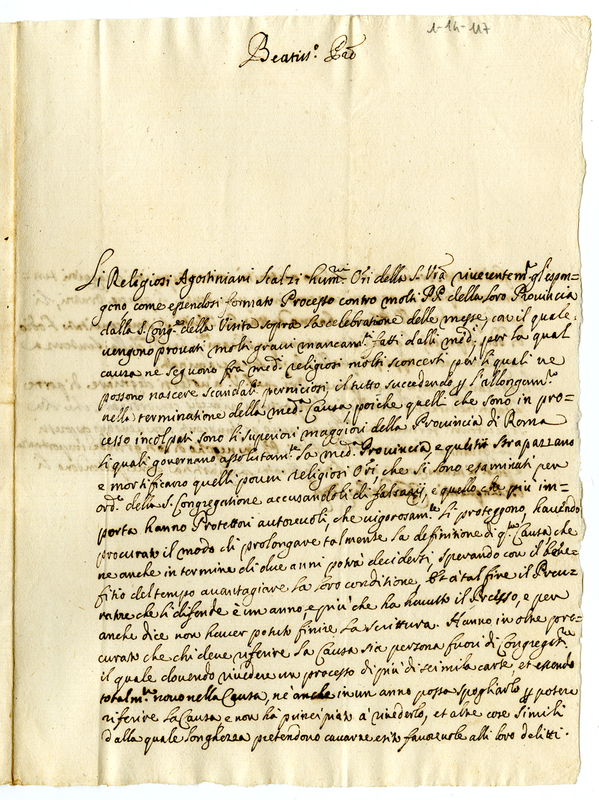 1-14-117
Beatiss.o Pad
Li Religiosi Agostiniani Scalzi hum.mi Ori della S. V.ra riverentem.te gl'espon=
gono, come essendosi formato Processo contro molti PP. della loro Provincia
dalla S. Cong.ne della Visita sopra la celebratione delle messe, con il quale
vengono provati molti gravi mancam.ti fatti dalli med.i, per la qual
causa ne seguono frà med.i religiosi molti sconcerti, per li quali ne
possono nascere scandali perniciosi, il tutto succedendo p l'allongam.to
nella terminatione della med.a Causa, poiche quelli che sono in pro=
cesso incolpati sono li superiori maggiori della Provincia di Roma
li quali governano assolutam.te la med.a Provincia, e quelli strapazzano
e mortificano quelli poveri religiosi Ori, che si sono esaminati per
ord.e della S. Congregatione accusandoli di falsarij, e quello che più im=
porta hanno Protettori autorevoli, che vigorosam.te li proteggono, havendo
procurato il modo di prolongare talmente la definitione di q.ta Causa che
ne anche in termine di due anni potrà decidersi, sperando con il bene=
fitio del tempo avantagiare la loro conditione, et à tal fine il Procu=
ratore che li difende è un anno, e più che ha havuto il Processo, e per
anche dice non haver potuto finire la scrittura. Hanno in oltre pro=
curato che chi deve riferire la Causa sia persona fuori di Congregat.ne
il quale dovendo rivedere un processo di più di sei mila carte, et essendo
totalm.te novo nella Causa, ne anche in un anno possa spogliarlo p potere
riferire la Causa e non hà principiato à rivederlo, et altre cose simili
dalla quale longhezza pretendono cavarne esito favorevole alli loro delitti.